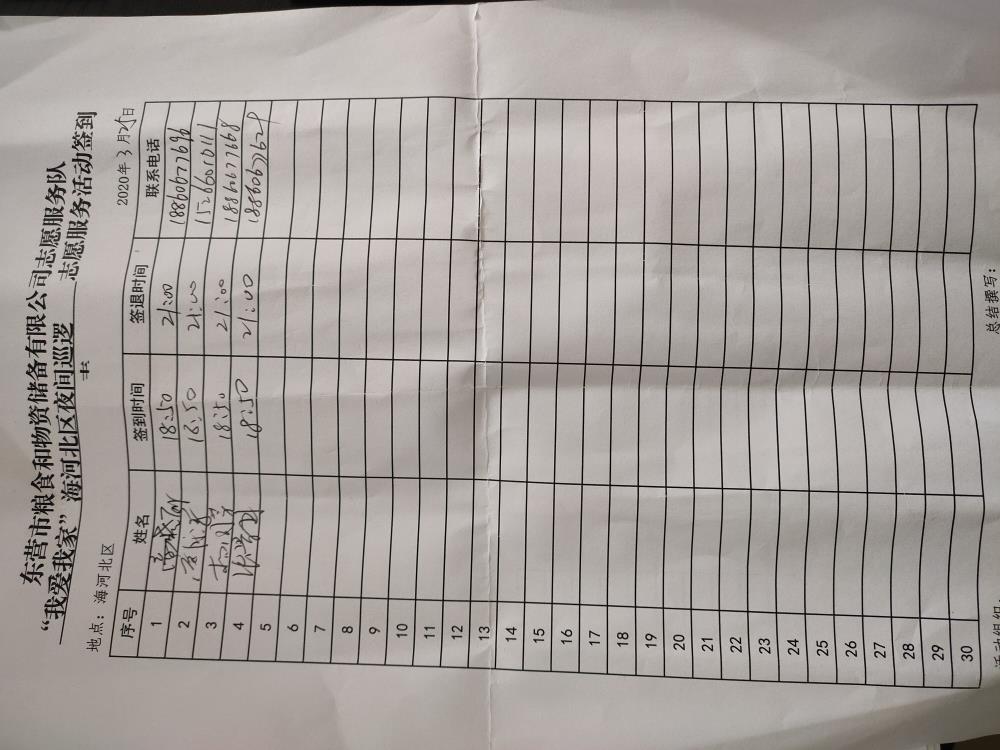 东营市粮食和物资储备有限公司志愿服务队
“我爱我家” 海河北区夜间巡逻 志愿服务活动签到
表
地点：海河北区 2020年3月25日
序号 姓名 签到时间 签退时间 联系电话
1 18:50 21:00 18860677696
2 18:50 21:00 15266010111
3 18:50 21:00 18860677668
4 18:50 21:00 18860677629
5
6
7
8
9
10
11
12
13
14
15
16
17
18
19
20
21
22
23
24
25
26
27
28
29
30
活动组织： 总结撰写：